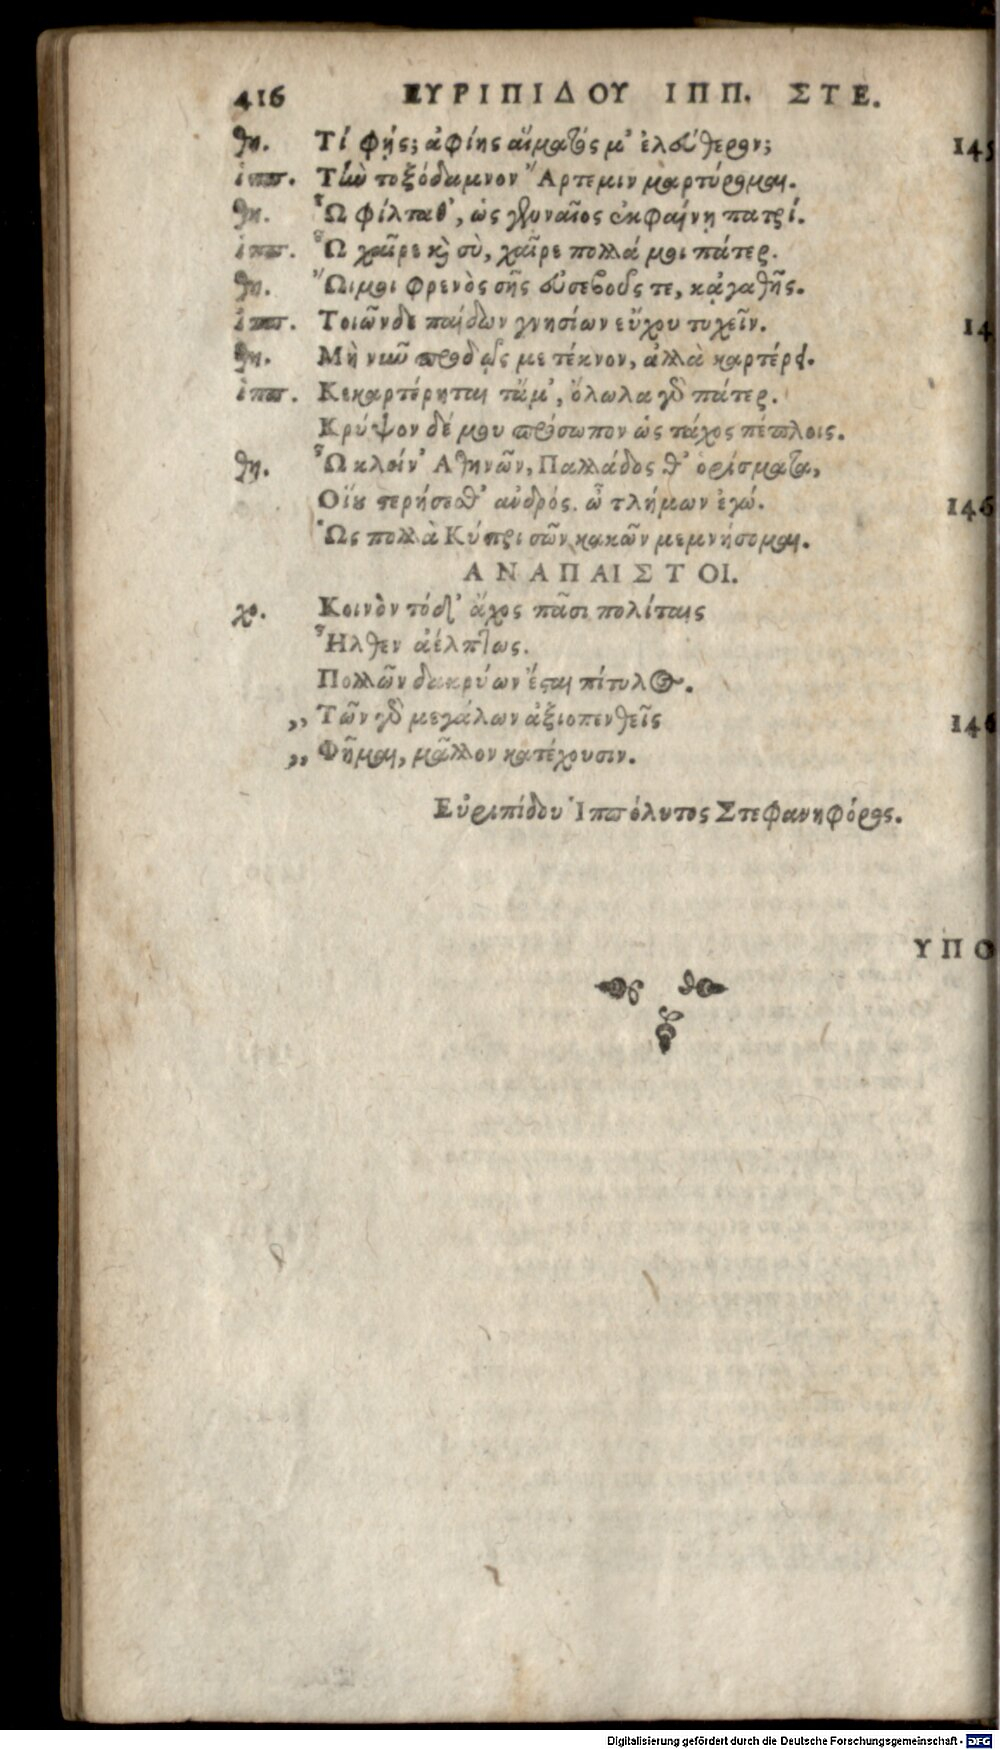 416 ΕΥΡΙΠΙΔΟΥ ΙΠΠ. ΣΤΕ.
θη. Τί φῄς; ἀφίης αἵματός μ' ἐλεύθερον; 145
ἱππ. Τὴν τοξόδαμνον Ἄρτεμιν μαρτύρομαι.
θη. Ὦ φίλταθ', ὡς γενναῖος ἐκφαίνῃ πατρί.
ἱππ. Ὦ χαῖρε καὶ σὺ, χαῖρε πολλά μοι πάτερ.
θη. Ὤιμοι φρενὸς σῆς εὐσεβοῦς τε, κᾀγαθῆς.
ἱππ. Τοιῶνδε παίδων γνησίων εὔχου τυχεῖν. 14
θη. Μὴ νῦν προδῷς με τέκνον, ἀλλὰ καρτέρει.
ἱππ. Κεκαρτέρηται τἄμ', ὄλωλα γὰρ πάτερ.
Κρύψον δέ μου πρόσωπον ὡς τάχος πέπλοις.
θη. Ὦ κλείν' Αθηνῶν, Παλλάδος θ' ὁρίσματα,
Οἵου στερήσεσθ' ἀνδρός. ὦ τλήμων ἐγώ. 146
Ὡς πολλὰ Κύπρι σῶν κακῶν μεμνήσομαι.
ΑΝΑΠΑΙΣΤΟΙ.
χο. Κοινὸν τόδ' ἄχος πᾶσι πολίταις
Ἦλθεν ἀέλπτως.
Πολλῶν δακρύων ἔσται πίτυλος.
,, Τῶν γὰρ μεγάλων ἀξιοπενθεῖς 146
,, Φῆμαι, μᾶλλον κατέχουσιν.
Εὐριπίδου Ἱππόλυτος Στεφανηφόρος.
ΥΠΟ
Digitalisierung gefördert durch die Deutsche Forschungsgemeinschaft - DFG